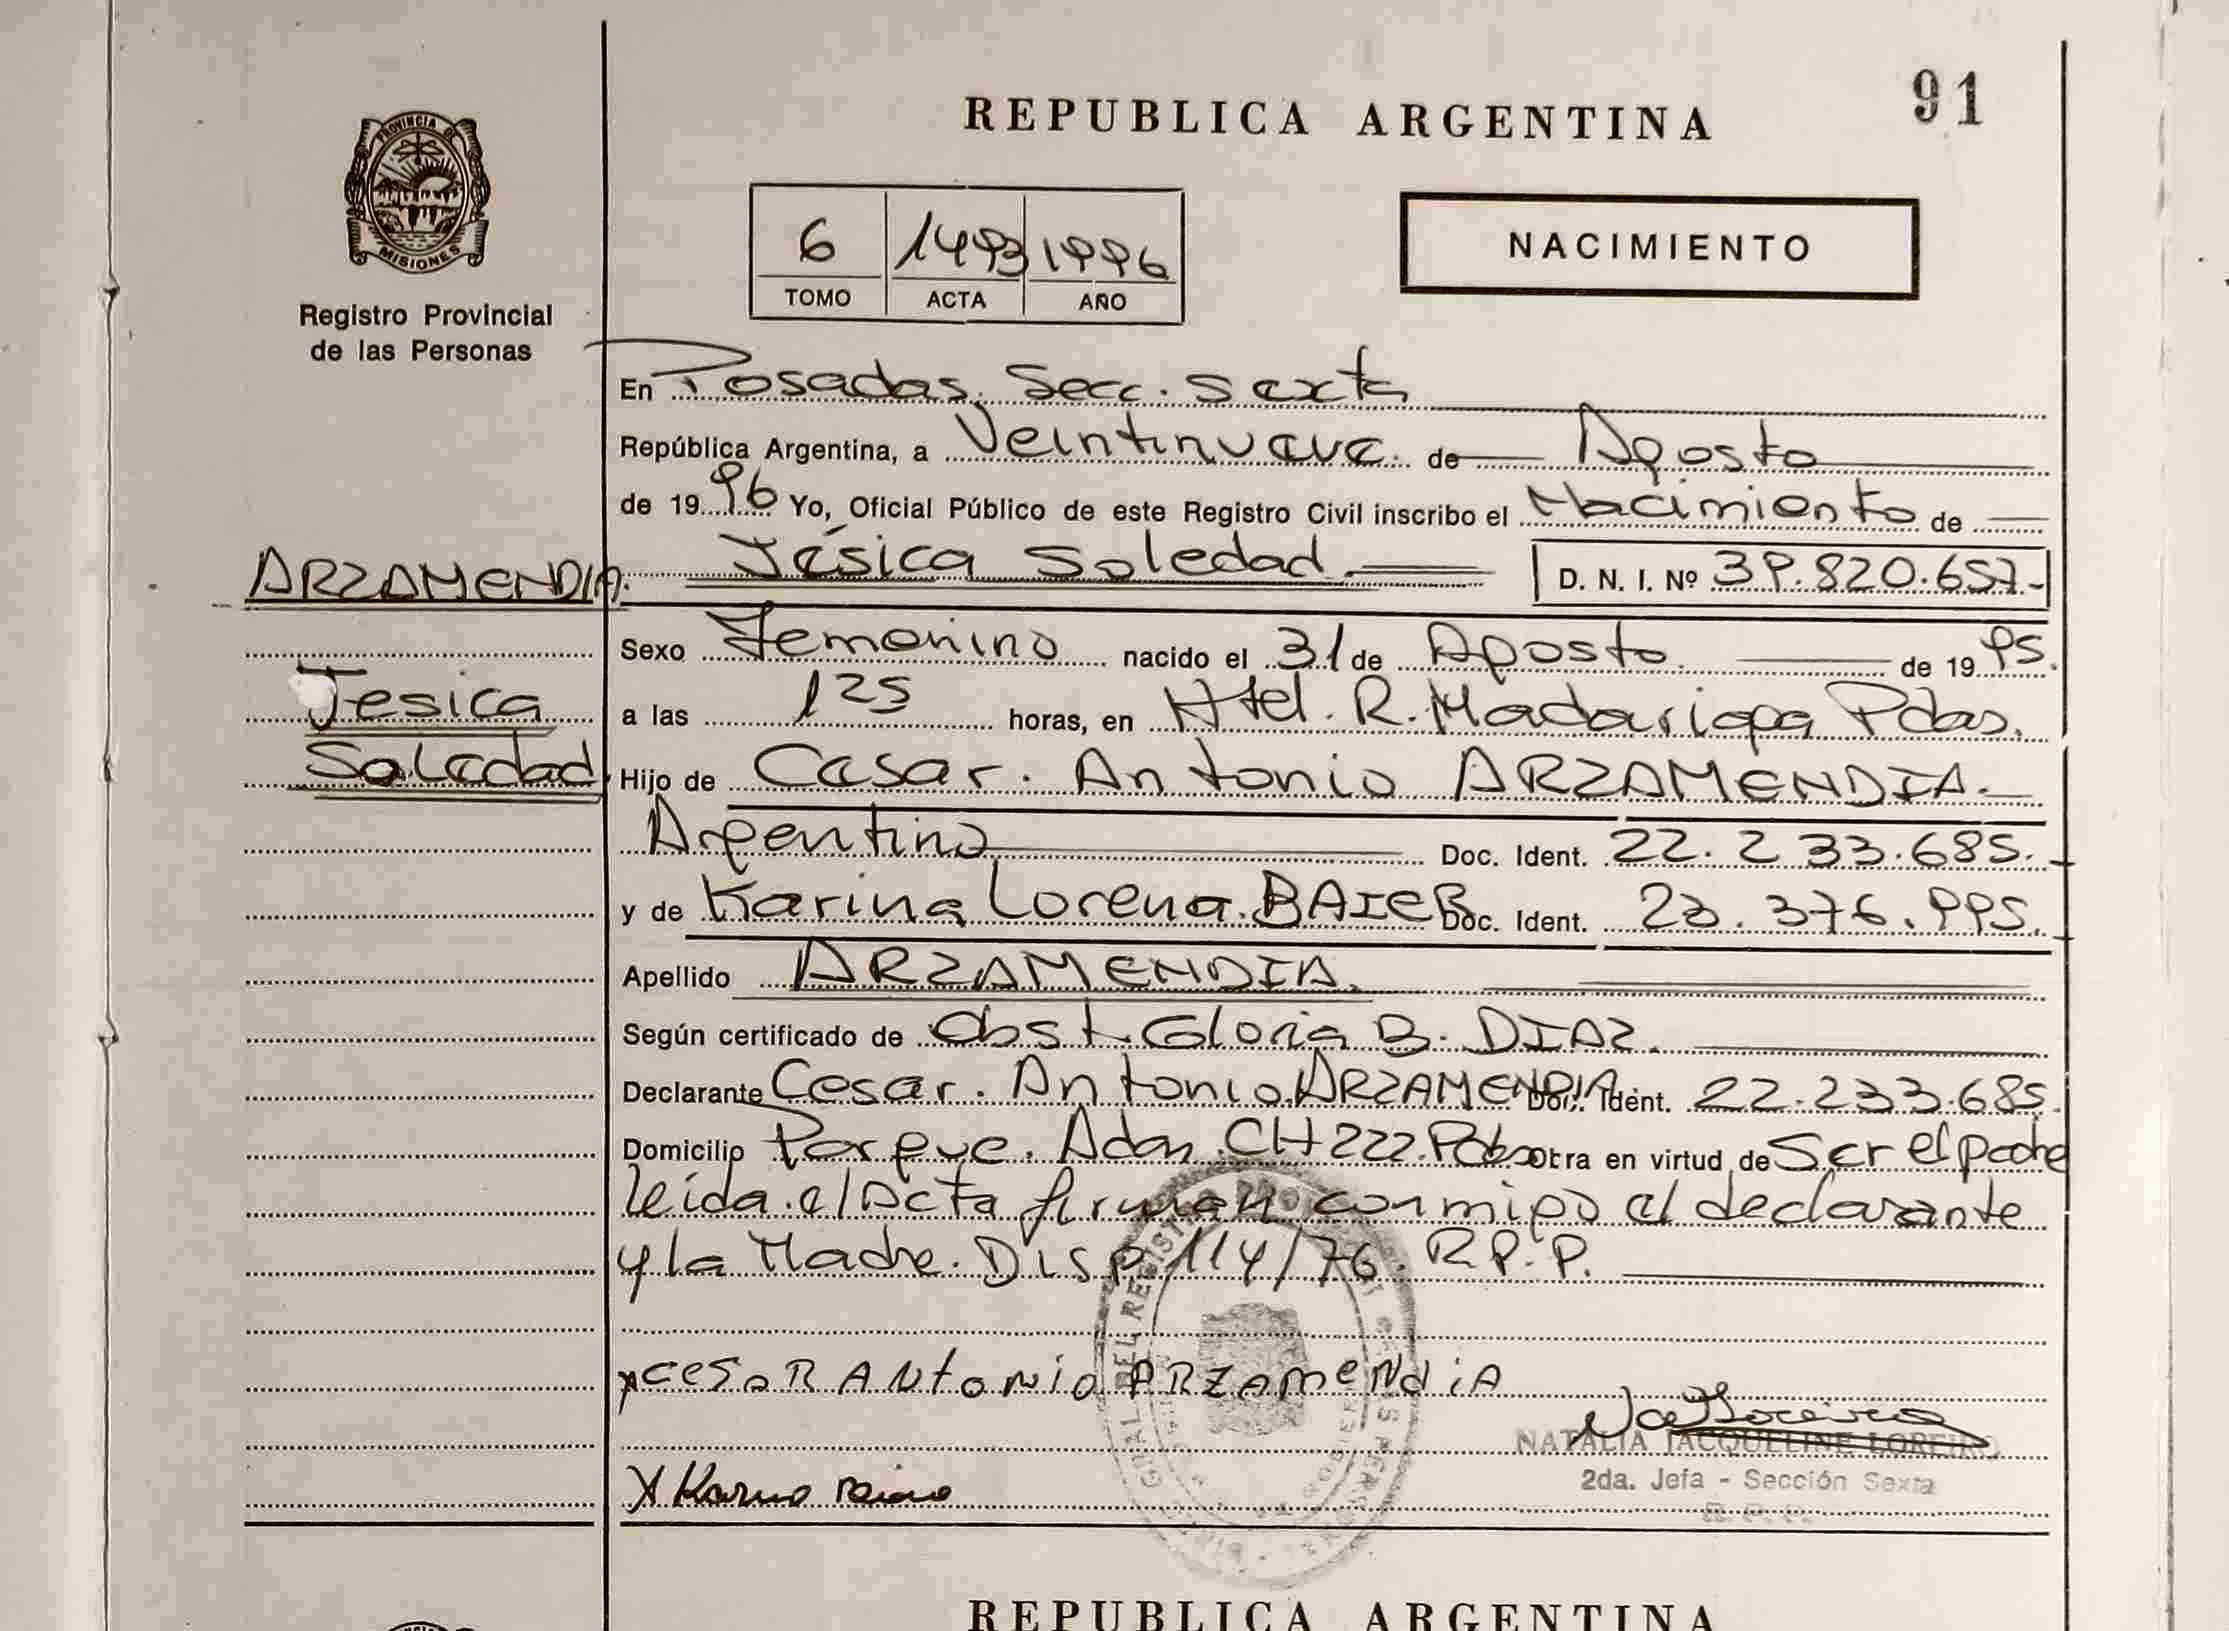 REPUBLICA ARGENTINA
91
PROVINCIA DE
MISIONES
Registro Provincial
de las Personas
6 1493 1996
TOMO ACTA AÑO
NACIMIENTO
En Posadas. Secc. sexta
República Argentina, a Veintinueve de Agosto
de 1996 Yo, Oficial Público de este Registro Civil inscribo el Nacimiento de
ARZAMENDIA. Jésica Soledad D. N. I. Nº 39.820.657.-
Sexo Femenino nacido el 31 de Agosto de 1995.
Jesica
a las 125 horas, en Htel. R. Madariaga Pdas.
Soledad
Hijo de Cesar. Antonio ARZAMENDIA.
Argentino Doc. Ident. 22.233.685.
y de Karina Lorena. Doc. Ident. 23.376.995.
Apellido ARZAMENDIA.
Según certificado de Obst. Gloria B. DIAZ.
Declarante Cesar. Antonio ARZAMENDIA Doc. Ident. 22.233.685.
Domicilio Parque. Adam. CH 222. Pdas Obra en virtud de Ser el padre
leída el Acta firman conmigo el declarante
y la Madre. Disp. 114/76. R.P.P.
x CESAR ANTONIO ARZAMENDIA
NATALIA JACQUELINE LOREIRO
2da. Jefa - Sección Sexta
R. P. P.
X Karina
REPUBLICA ARGENTINA